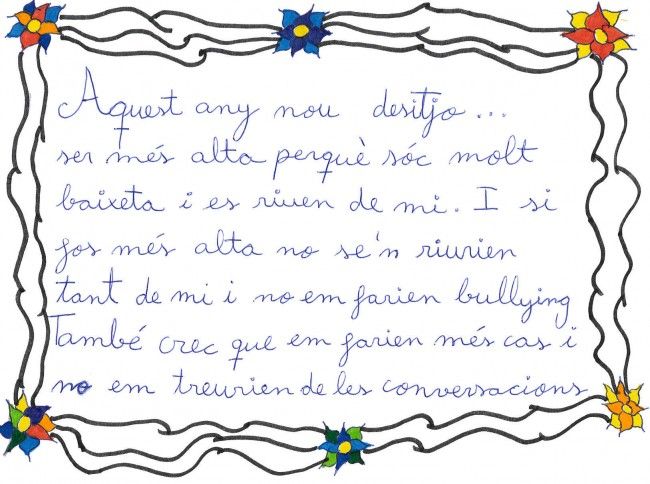 Aquest any nou desitjo...
ser més alta perquè sóc molt
baixeta i es riuen de mi. I si
fos més alta no se'n riurien
tant de mi i no em farien bullying
També crec que em farien més cas i
no em treurien de les conversacions